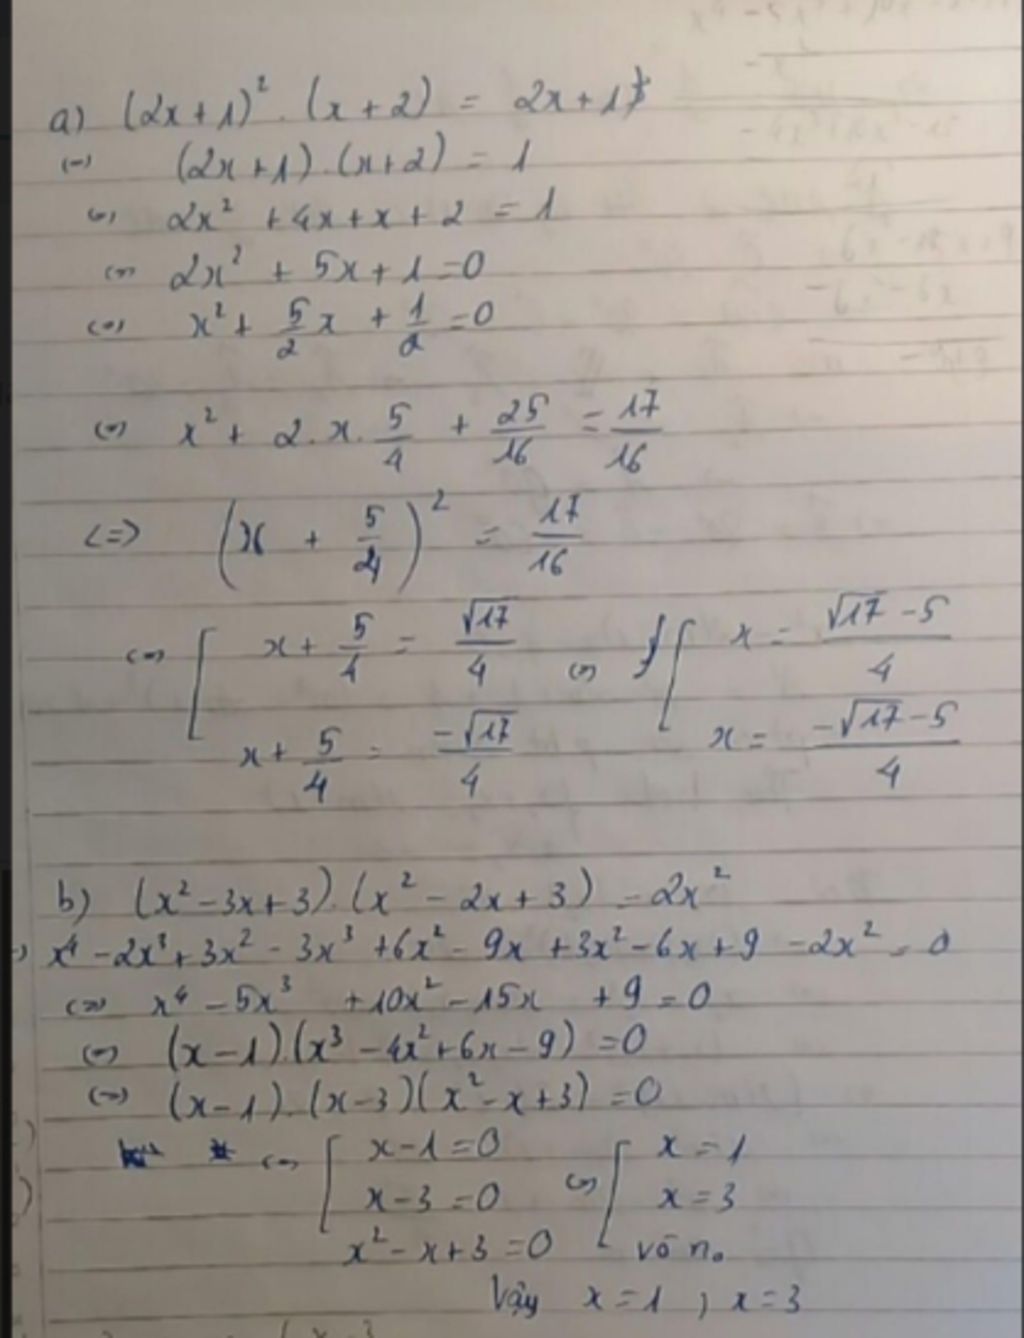 a) (2x+1)² . (x+2) = 2x+1
(=) (2x+1).(x+2) = 1
(=) 2x² + 4x+x+2 = 1
(=) 2x² + 5x+1=0
(=) x²+ 5/2 x + 1/2 =0
(=) x²+ 2.x. 5/4 + 25/16 = 17/16
<=> (x + 5/4)² = 17/16
(=) [ x + 5/4 = √17/4 (=) [ x = (√17 -5)/4
x + 5/4 = -√17/4 x = (-√17 -5)/4
b) (x²-3x+3).(x² - 2x+3) = 2x²
) x⁴ -2x³+3x² -3x³ +6x² - 9x +3x²-6x+9 -2x² = 0
(=) x⁴ -5x³ +10x² -15x +9 =0
(=) (x-1).(x³ -4x²+6x-9) =0
(=) (x-1).(x-3)(x²-x+3) =0
(=) [ x-1=0 (=) [ x=1
x-3=0 x=3
x²-x+3=0 vô n.
Vậy x=1 ; x=3